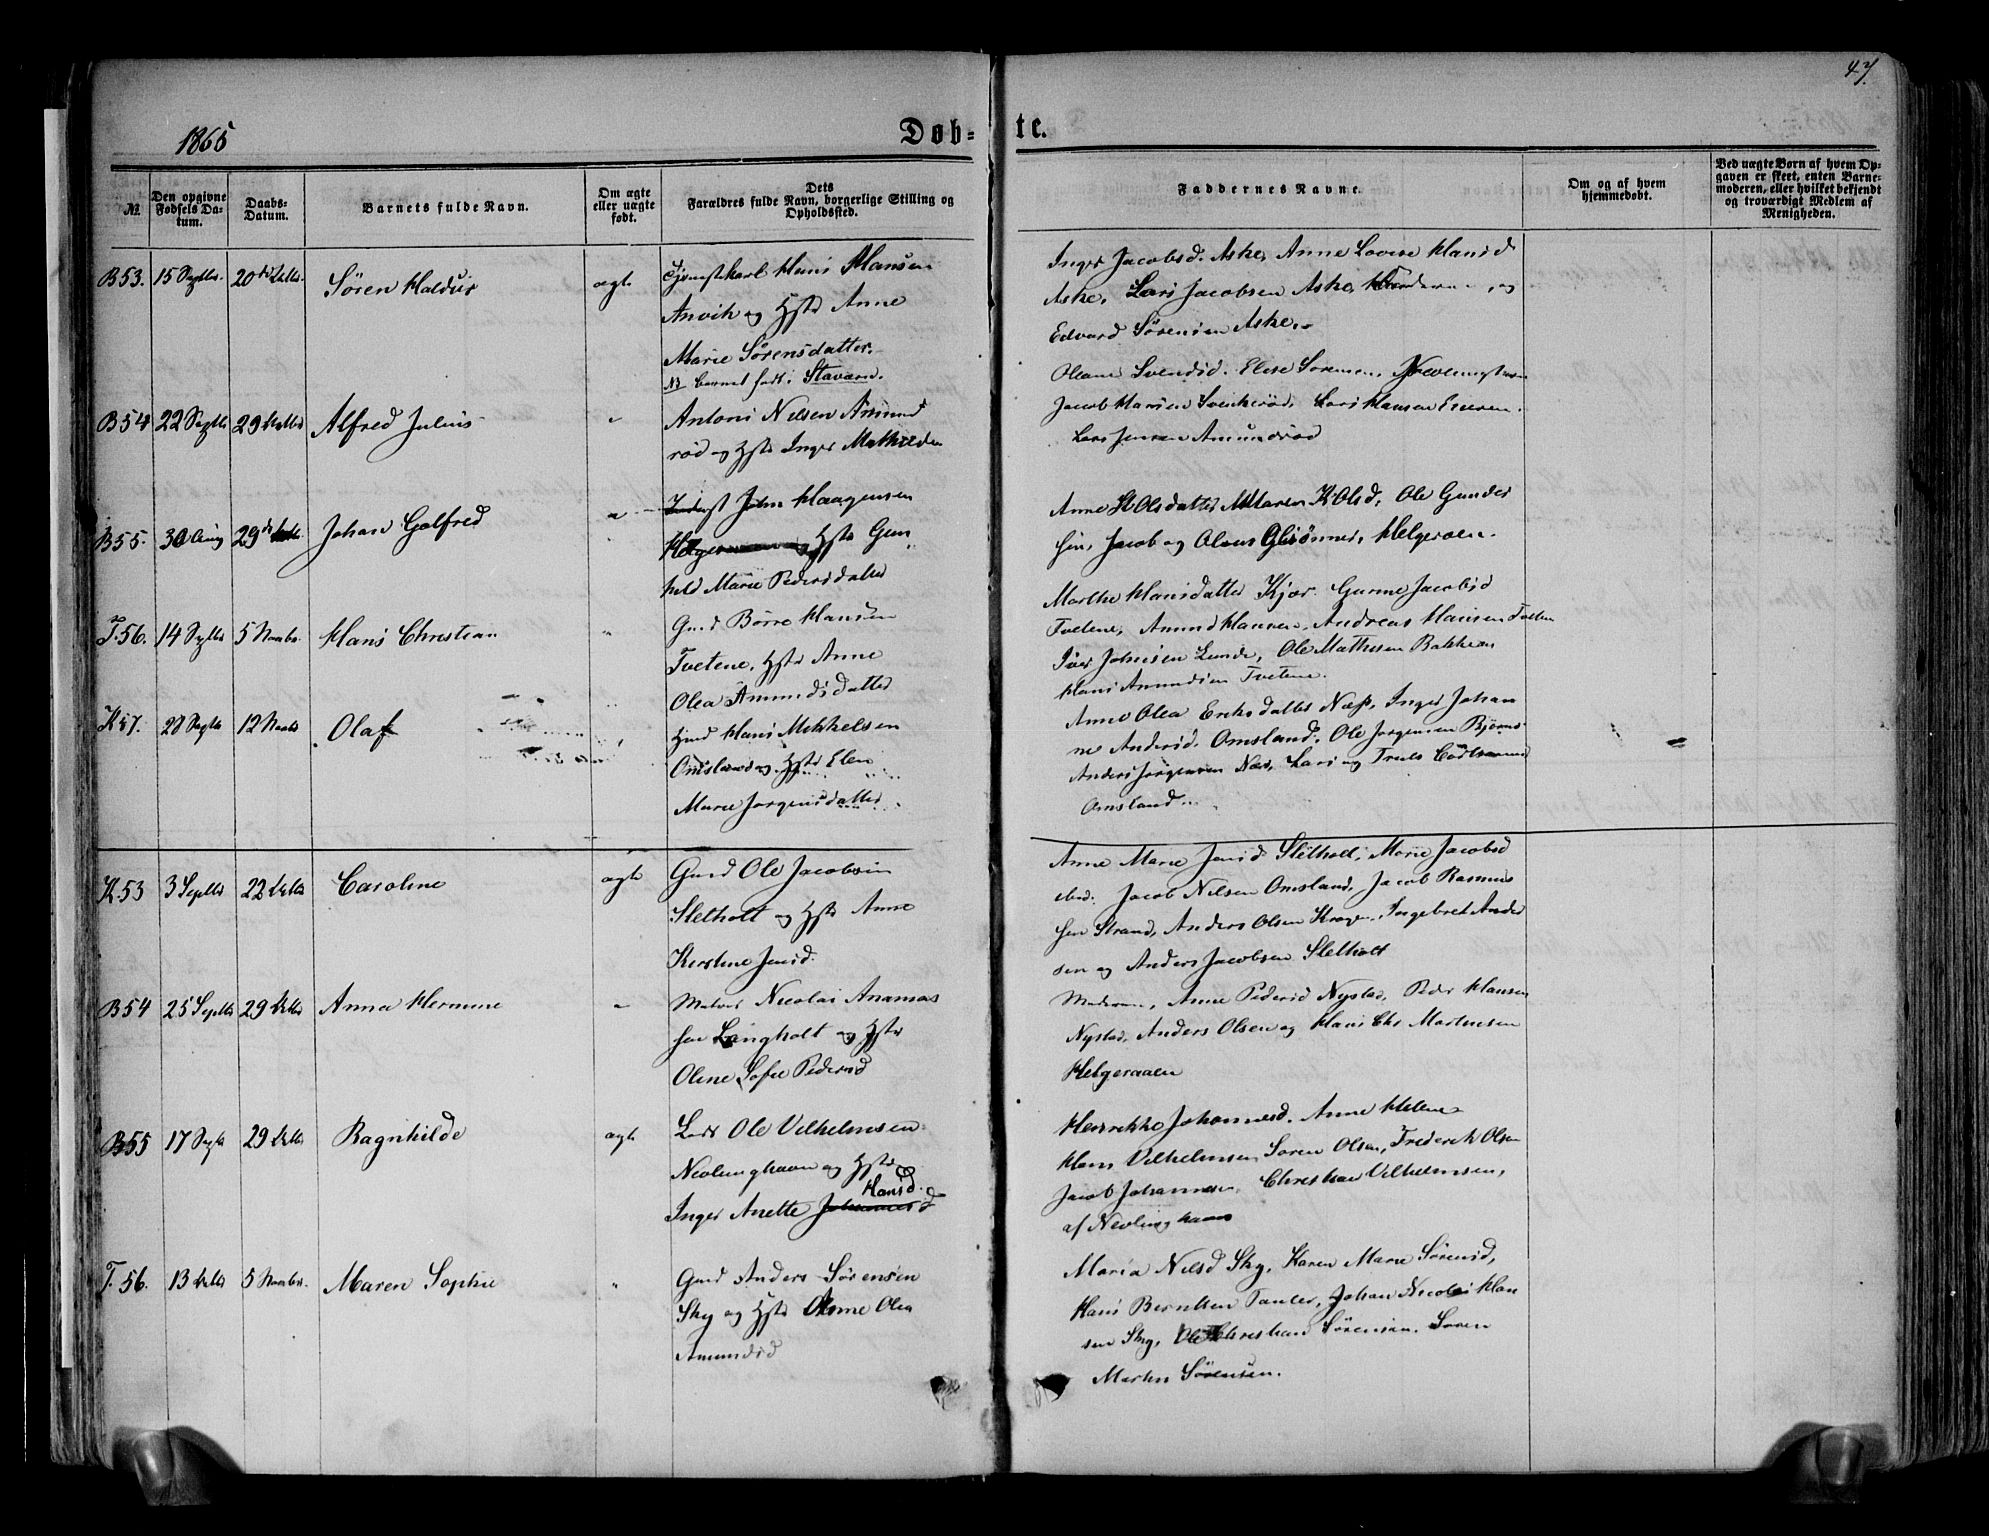 47.
1865
Døb-
te.
№
Den opgivne
Fødsels Da-
tum.
Daabs-
Datum.
Barnets fulde Navn.
Om ægte
eller uægte
født.
Dets
Forældres fulde Navn, borgerlige Stilling og
Opholdssted.
Faddernes Navne.
Om og af hvem
hjemmedøbt.
Ved uægte Børn af hvem Op-
gaven er skeet, enten Barne-
moderen, eller hvilket bekjendt
og troværdigt Medlem af
Menigheden.
B53. 15 Septbr. 20de Octbr. Søren Haldur ægte Tjenestkarl Hans Hansen
Anvik og Hstr Anne
Marie Sørensdatter.
NB Barnet født i Staværn.
Inger Jacobsd. Aske, Anne Lovise Hansd
Aske, Lars Jacobsen Aske, og
Edvard Sørensen Aske.
B54 22 Septbr 29 Octbr Alfred Julius " Antoni Nilsen Amund
rød og Hstr Inger Mathilde
Oleane Svendsd. Elise Sorensen, Nevlunghavn
Jacob Hansen Lars Hansen
Lars Jensen Amundrød
B55. 30 Aug 29de Octbr Johan Golfred " Inderst John Haagensen
Helgeroen og Hstr Gun
hild Marie Pedersdatter
Anne Olsdatter Maren K Olsd, Ole Gunder
sen, Jacob og Olaus Helgeroen.
T.56. 14 Septbr 5 Novbr. Hans Christian " Gmd Børre Hansen
Tvetene, Hstr Anne
Olea Amundsdatter
Marthe Hansdatter Kjær. Gurine Jacobsd
Tvetene, Amund Hansen, Andreas Hansen Tveten
Iver Johnsen Lunde, Ole Mathisen Bakken
Hans Amundsen Tvetene.
K57. 28 Septbr 12 Novbr Olaf Gmd Hans Mikkelsen
Omsland og Hstr Elen
Marie Jørgensdatter
Anne Olea Eriksdatter Næss, Inger Johan
ne Andersd. Omsland, Ole Jørgensen Bjønnes
Anders Jørgensen Næs, Lars og Truls
Omsland
K.53 3 Septbr 22 Octbr Caroline ægte Gmd Ole Jacobsen
Sletholt og Hstr Anne
Kirstine Jensd.
Anne Marie Jensd Sletholt, Marie Jacobsd
ibd. Jacob Nilsen Omsland, Jacob Rasmus
sen Strand, Anders Olsen Ingebret Ander
sen og Anders Jacobsen Sletholt
B54 25 Septbr 29 Octbr Anna Hermine " Matros Nicolai Ananias
sen Langholt og Hstr
Oline Sofie Pedersd
Moderen, Anne Pedersd Nystad, Peder Hansen
Nystad, Anders Olsen og Hans Chr Martinsen
Helgeraaen
B55 17 Septbr 29 Octbr Ragnhilde ægte Lods Ole Vilhelmsen
Nevlunghavn og Hstr
Hansd.
Inger Anette Johannesd
Henrikke Johannesd. Anne Helene
Hans Vilhelmsen Soren Olsen, Frederik Olsen
Jacob Johannesen, Christian Vilhelmsen,
af Nevlunghavn
T.56. 13 Octbr 5 Novbr. Maren Sophie " Gmd Anders Sørensen
Sky og Hstr Anne Olea
Amundsd
Maria Nilsd Sky, Karen Marie Sørensd,
Hans Berntsen Johan Nicolai Han
sen Sky, Ole Christian Sørensen. Soren
Martin Sørensen.